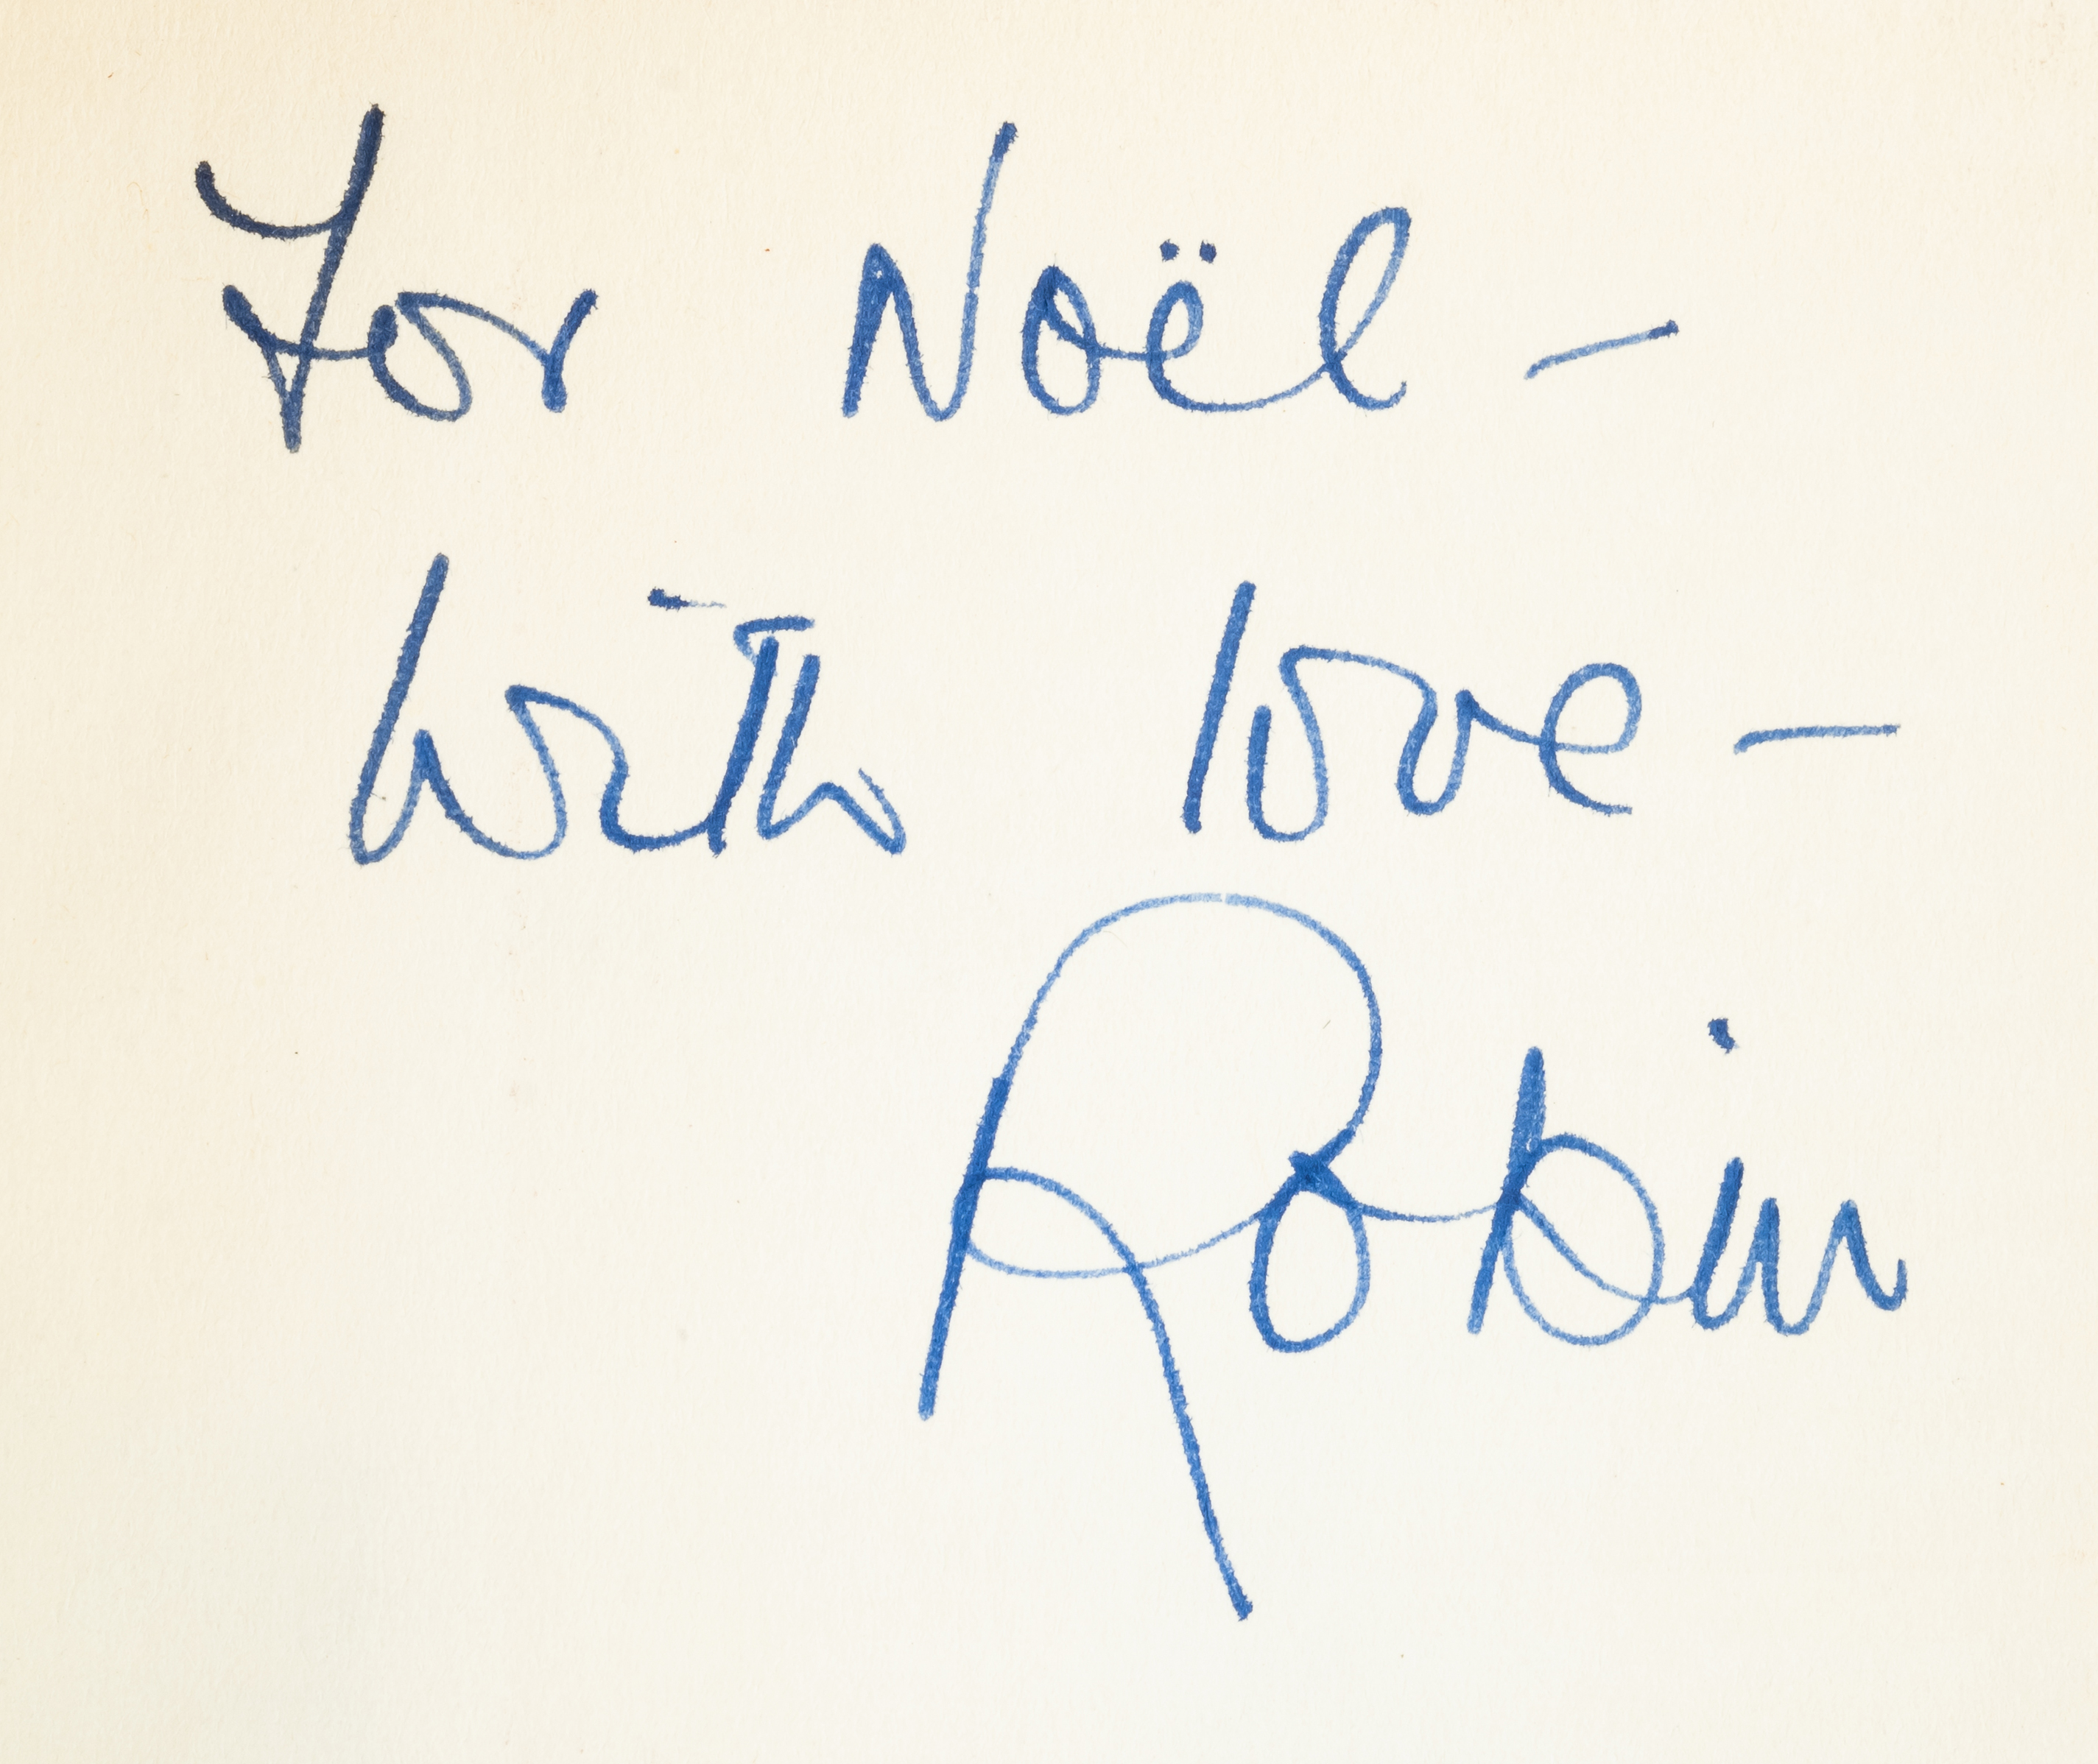 For Noël –
with love –
Robin